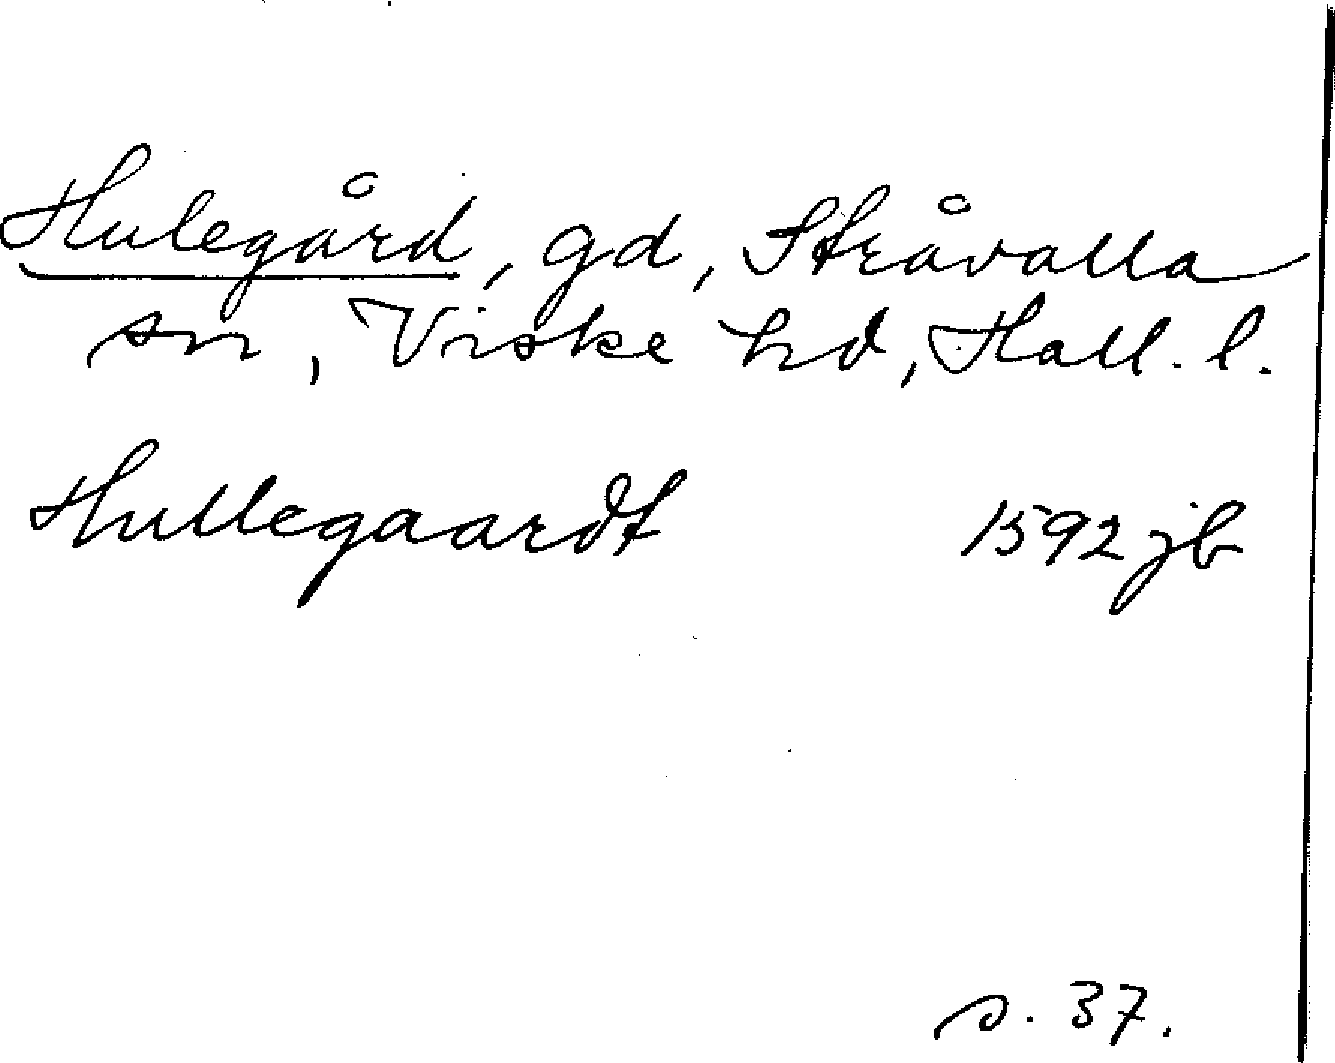 Hulegård, gd, Stråvalla
sn, Viske hd, Hall. l.
Hullegaardt 1592 jb
s. 37.